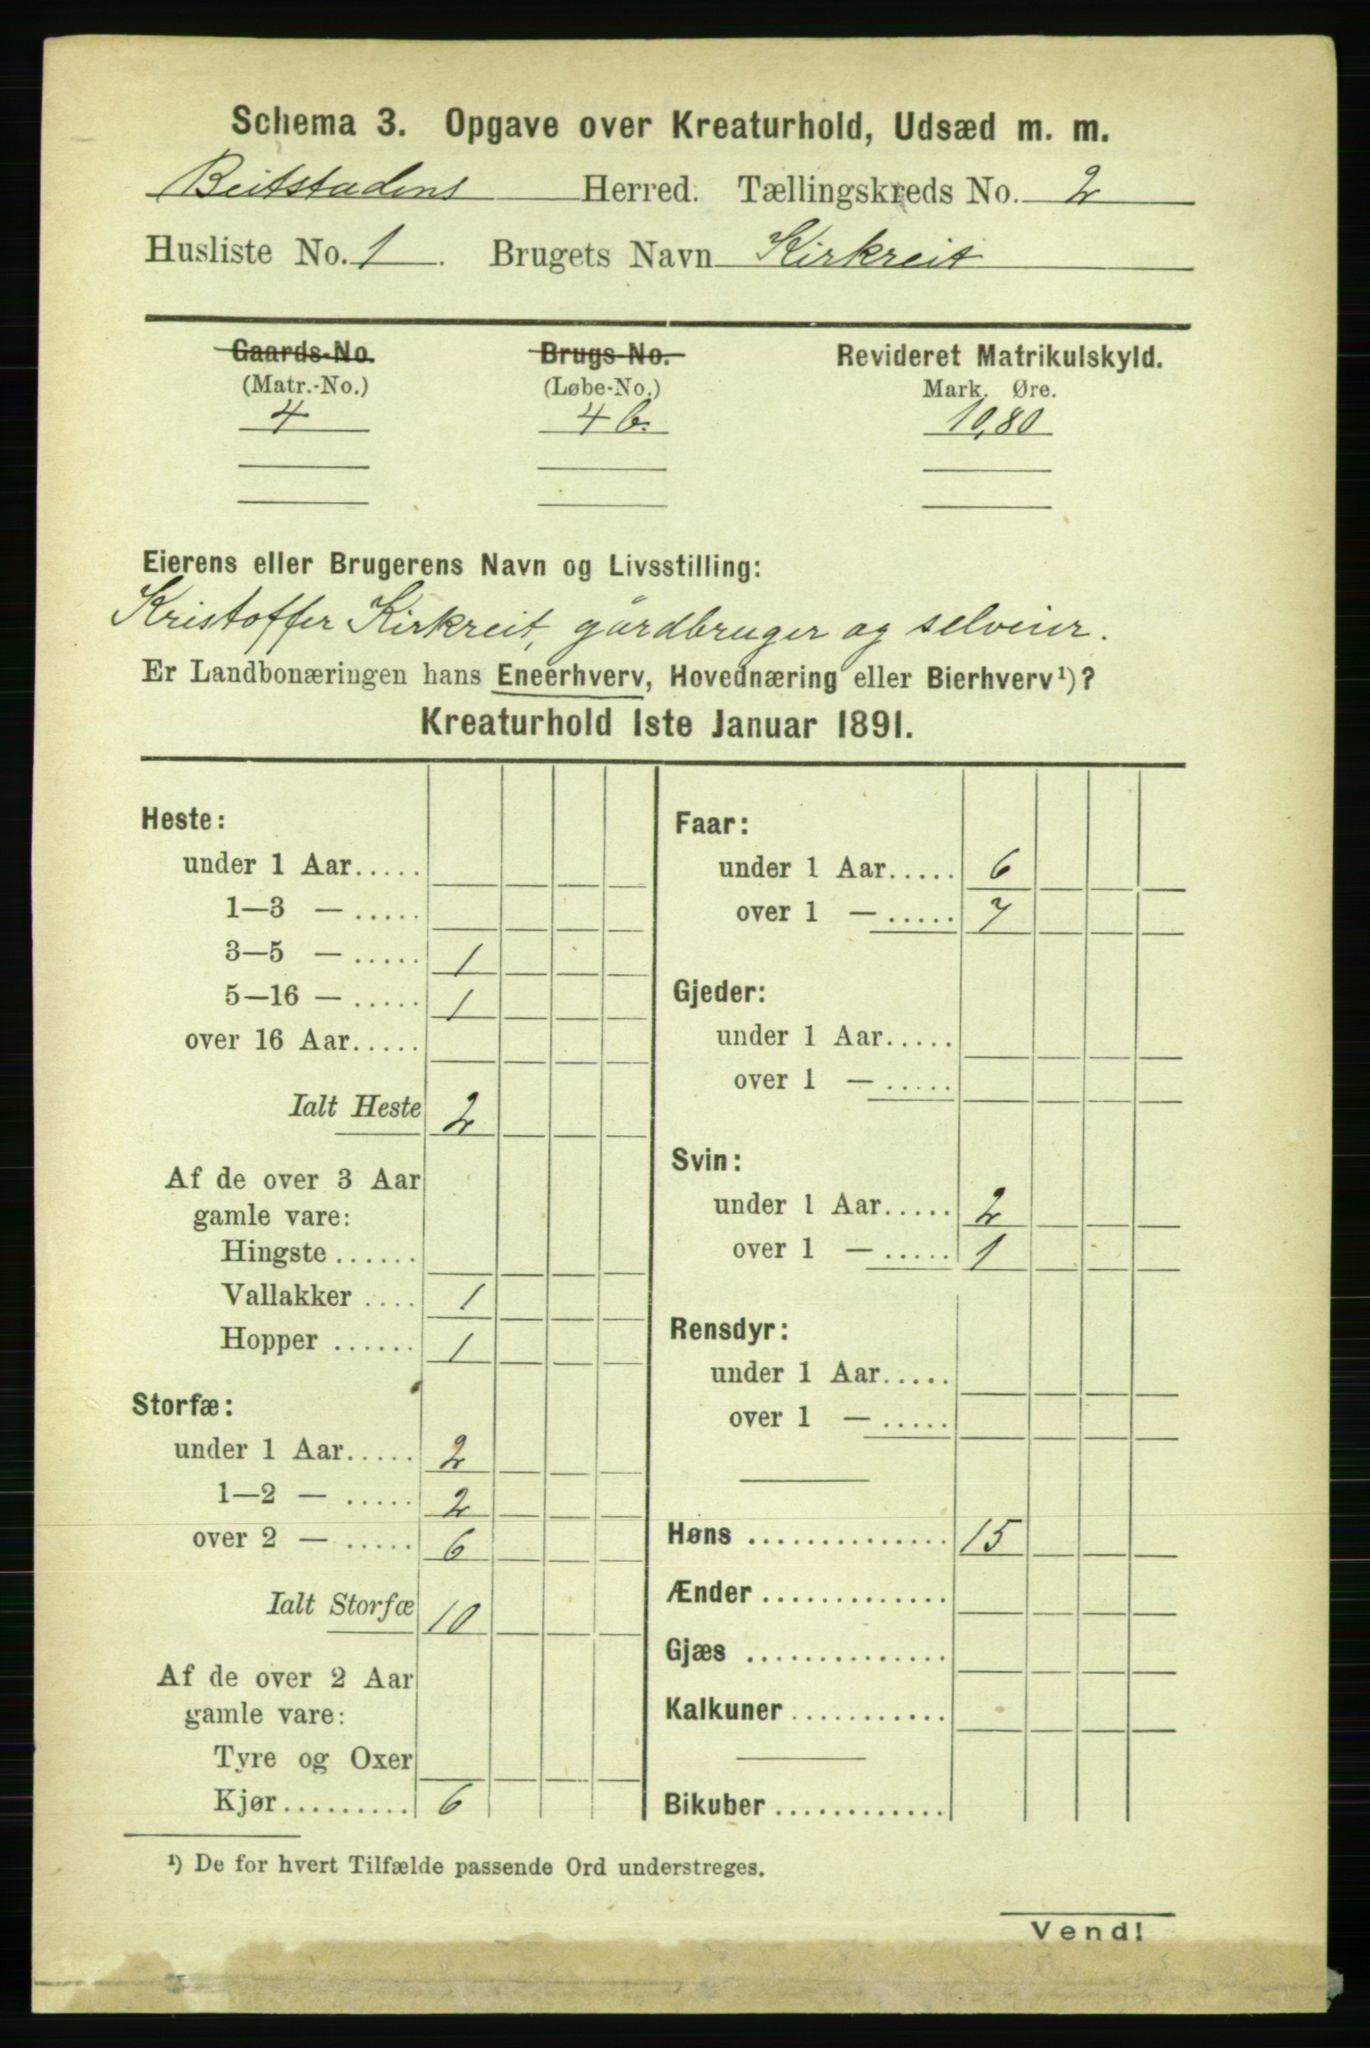 Schema 3. Opgave over Kreaturhold, Udsæd m. m.
Beitstadens Herred. Tællingskreds No. 2
Husliste No. 1. Brugets Navn Kirkreit
Gaards-No. Brugs-No. Revideret Matrikulskyld.
(Matr.-No.) (Løbe-No.) Mark. Øre.
4 4 b. 10,80
Eierens eller Brugerens Navn og Livsstilling:
Kristoffer Kirkreit, gårdbruger og selveier.
Er Landbonæringen hans Eneerhverv, Hovednæring eller Bierhverv¹)?
Kreaturhold 1ste Januar 1891.
Heste:
under 1 Aar.....
1—3 — .....
3—5 — ..... 1
5—16 — ..... 1
over 16 Aar.....
Ialt Heste 2
Af de over 3 Aar
gamle vare:
Hingste ......
Vallakker .... 1
Hopper ...... 1
Storfæ:
under 1 Aar..... 2
1—2 — ..... 2
over 2 — ..... 6
Ialt Storfæ 10
Af de over 2 Aar
gamle vare:
Tyre og Oxer
Kjør.......... 6
Faar:
under 1 Aar..... 6
over 1 — ..... 7
Gjeder:
under 1 Aar.....
over 1 — .....
Svin:
under 1 Aar..... 2
over 1 — ..... 1
Rensdyr:
under 1 Aar.....
over 1 — .....
Høns ............... 15
Ænder .............
Gjæs ...............
Kalkuner ............
Bikuber .............
¹) De for hvert Tilfælde passende Ord understreges.
Vend!